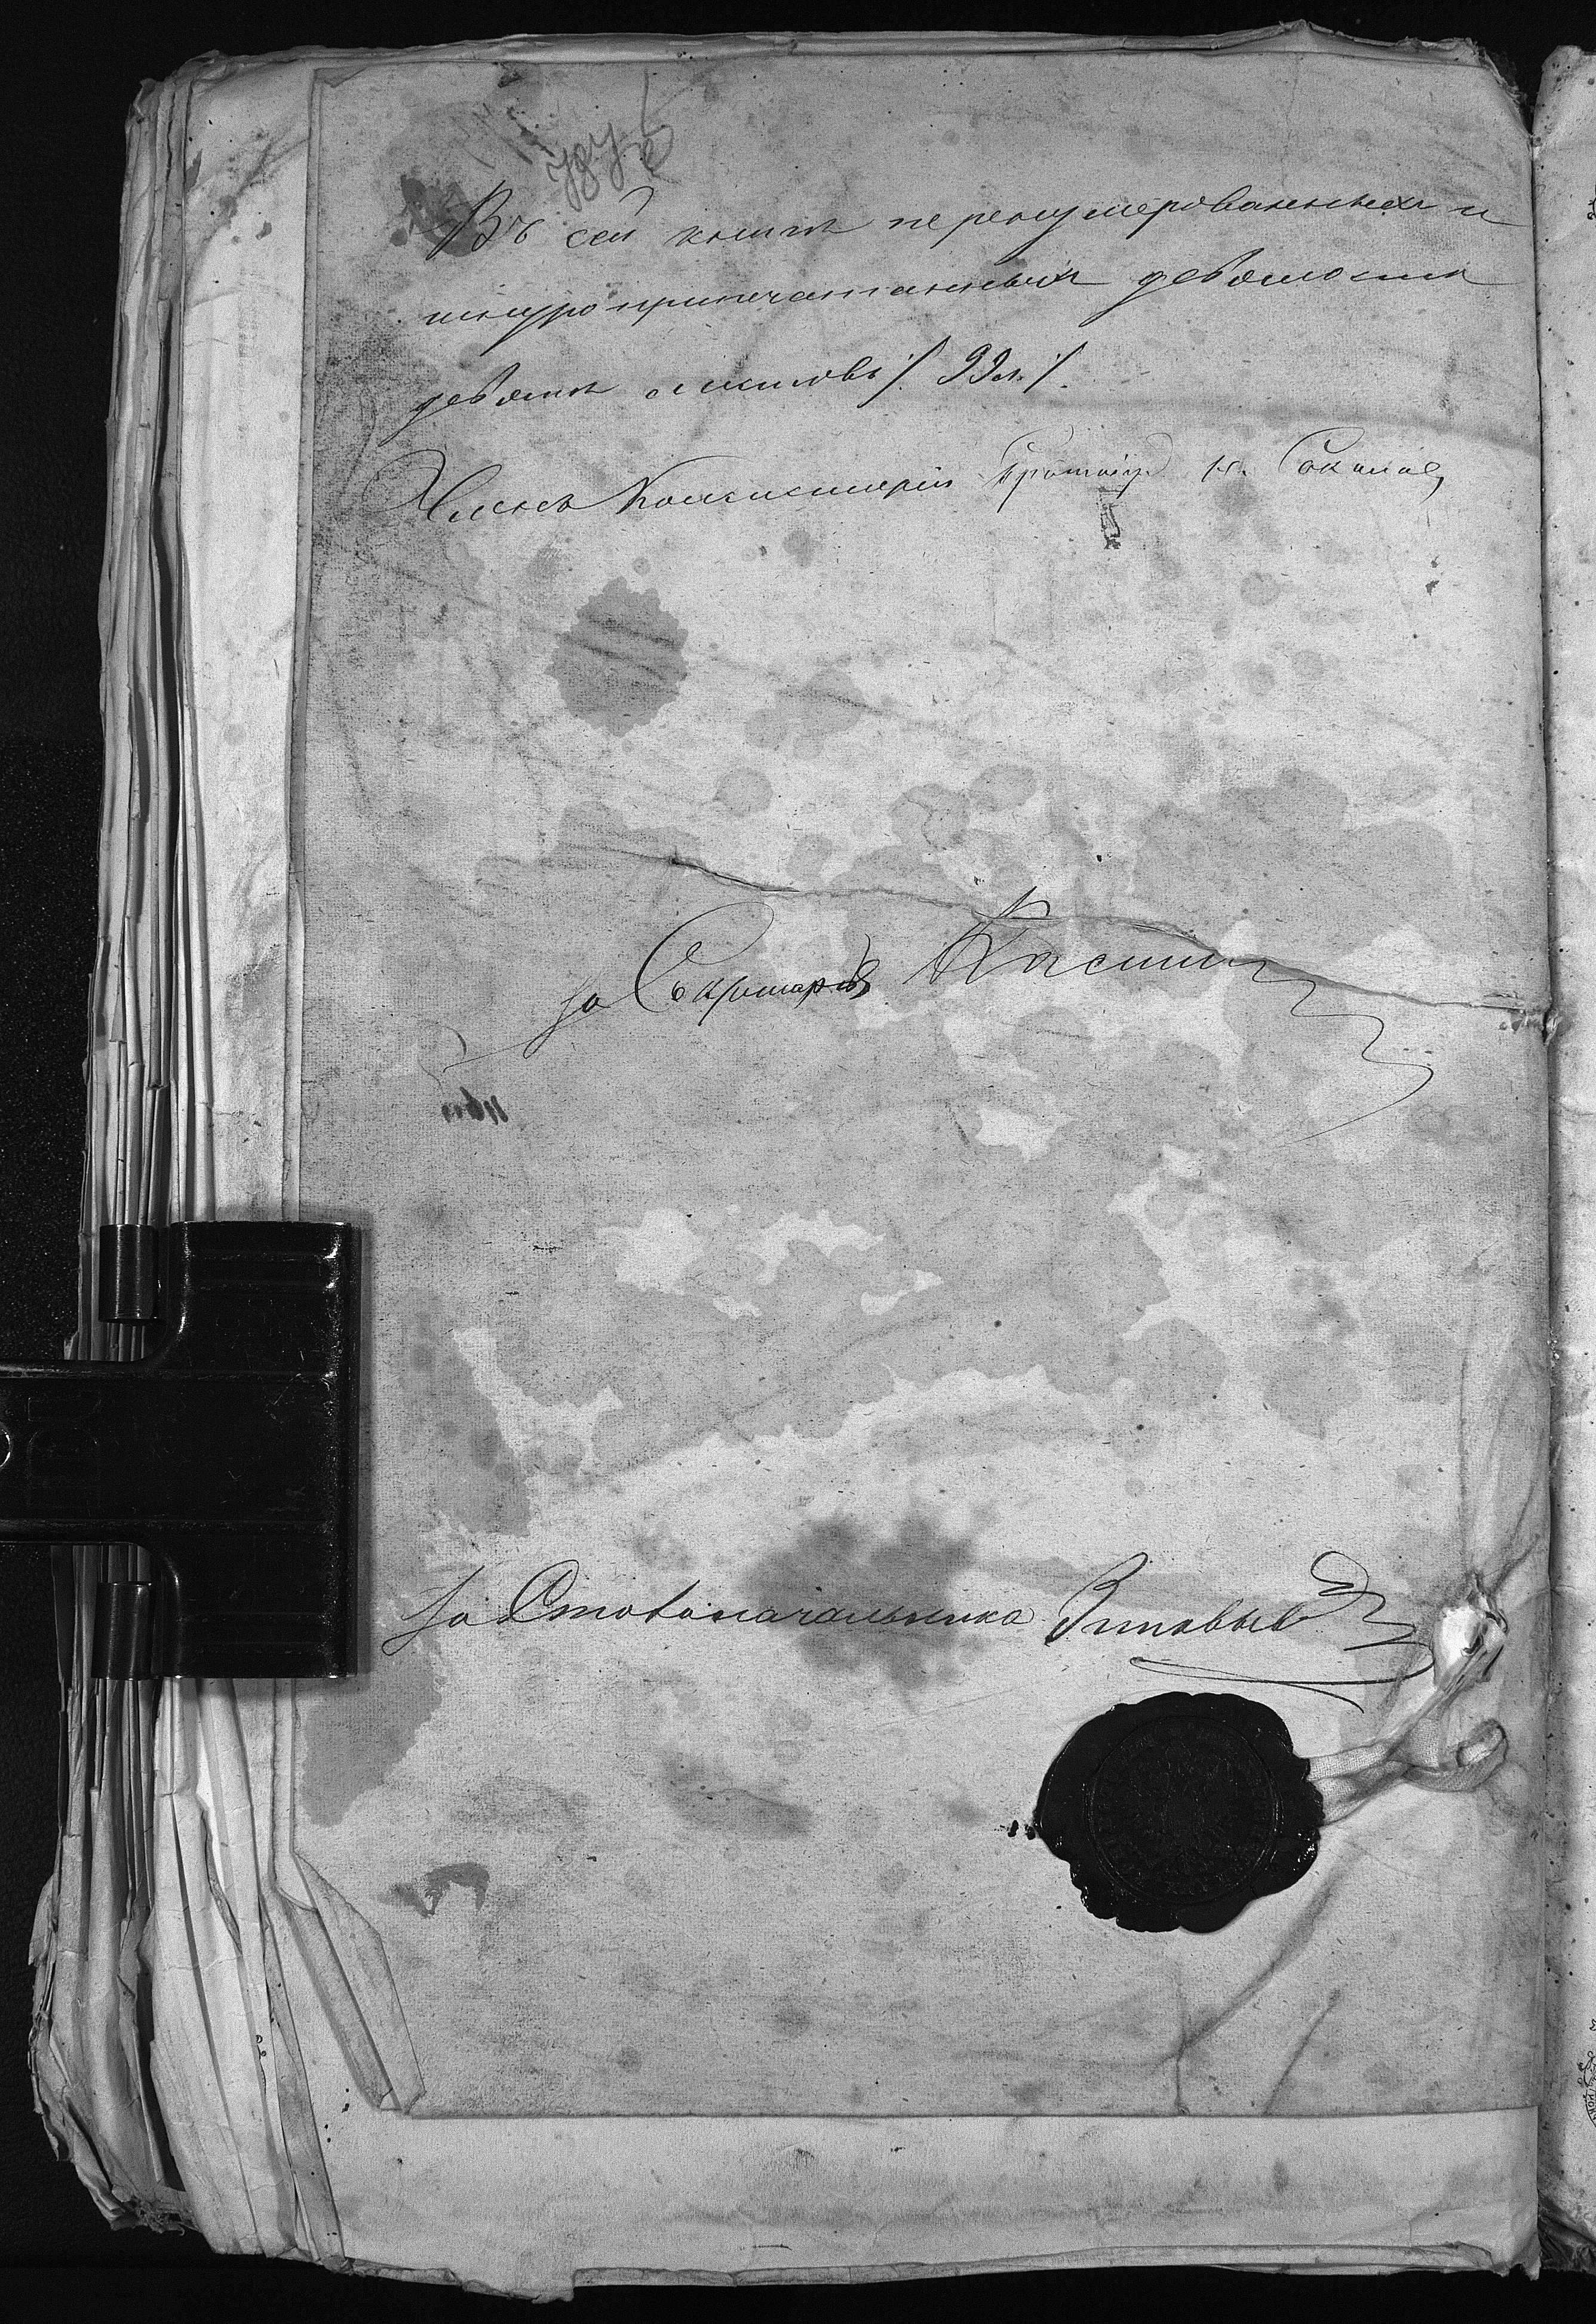 Въ сей книгѣ перенумерованныхъ и
шнуроприпечатанныхъ девяносто
девять листовъ /. 99 л. /.
Членъ Консисторіи Протоіер. Н. Соколов
За Секретаря
За Столоначальника Зиновьев